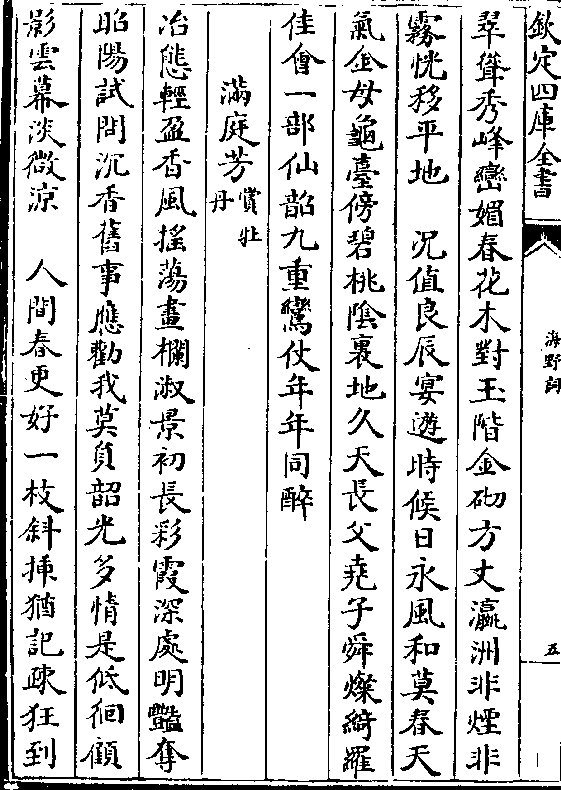 欽定四庫全書
海野詞
五
翠聳秀峰巒媚春花木對玉階金砌方丈瀛洲非煙非
霧恍移平地　況值良辰宴遊時候日永風和莫春天
氣金母龜臺傍碧桃陰裏地久天長父堯子舜燦綺羅
佳會一部仙韶九重鸞仗年年同醉
滿庭芳賞牡丹
冶態輕盈香風搖蕩畫欄淑景初長彩霞深處明豔奪
昭陽試問沉香舊事應勸我莫負韶光多情是低徊顧
影雲幕淡微涼　人間春更好一枝斜揷猶記疎狂到